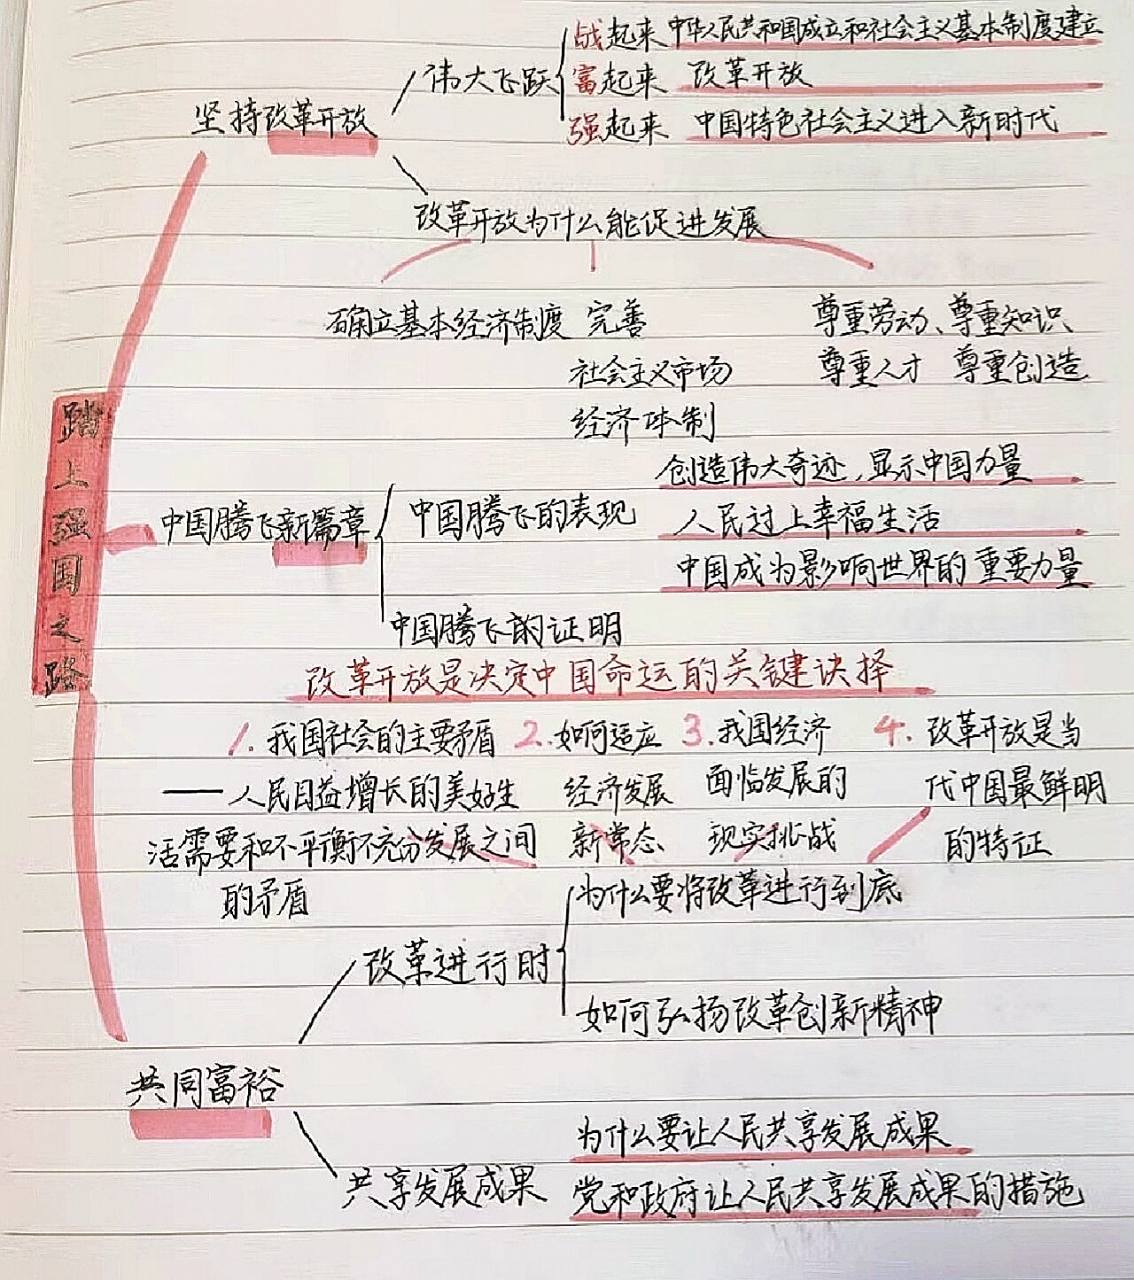 战起来 中华人民共和国成立和社会主义基本制度建立
伟大飞跃 富起来 改革开放
坚持改革开放
强起来 中国特色社会主义进入新时代
改革开放为什么能促进发展
确立基本经济制度 完善 尊重劳动、尊重知识
社会主义市场 尊重人才 尊重创造
经济体制
踏上强国之路
创造伟大奇迹,显示中国力量
中国腾飞新篇章 中国腾飞的表现 人民过上幸福生活
中国成为影响世界的重要力量
中国腾飞的证明
改革开放是决定中国命运的关键诀择
1. 我国社会的主要矛盾 2. 如何适应 3. 我国经济 4. 改革开放是当
——人民日益增长的美好生 经济发展 面临发展的 代中国最鲜明
活需要和不平衡不充分发展之间 新常态 现实挑战 的特征
的矛盾
为什么要将改革进行到底
改革进行时
如何弘扬改革创新精神
共同富裕
为什么要让人民共享发展成果
共享发展成果 党和政府让人民共享发展成果的措施